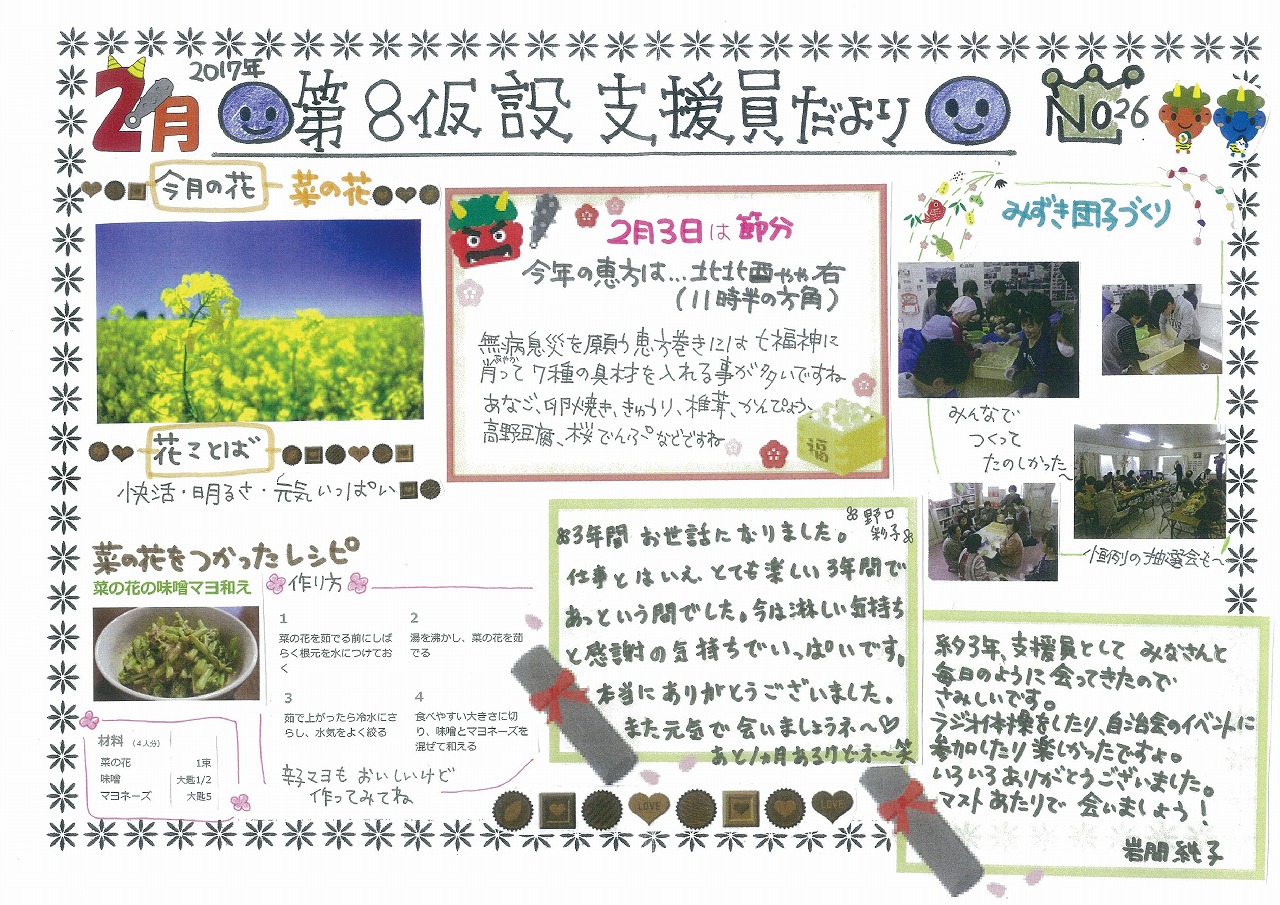 2月
2017年
第8仮設 支援員だより
No26
今月の花
菜の花
花ことば
快活・明るさ・元気いっぱい
2月3日は節分
今年の恵方は…北北西やや右
(11時半の方角)
無病息災を願う恵方巻きには七福神に
肖(あやか)って7種の具材を入れる事が多いですね
あなご、卵焼き、きゅうり、椎茸、かんぴょう、
高野豆腐、桜でんぶなどですね
福
みずき団子づくり
みんなで
つくって
たのしかった~
恒例の抽選会も~
菜の花をつかったレシピ
菜の花の味噌マヨ和え
作り方
1
菜の花を茹でる前にしば
らく根元を水につけてお
く
2
湯を沸かし、菜の花を茹
でる
3
茹で上がったら冷水にさ
らし、水気をよく絞る
4
食べやすい大きさに切
り、味噌とマヨネーズを
混ぜて和える
材料 (4人分)
菜の花 1束
味噌 大匙1/2
マヨネーズ 大匙5
辛子マヨも おいしいけど
作ってみてね
3年間 お世話になりました。
野口
彩子
仕事とはいえ、とても楽しい3年間で
あっという間でした。今は淋しい気持ち
と感謝の気持ちでいっぱいです。
本当にありがとうございました。
また元気で会いましょうネ~♡
あと1ヵ月あるけどネー笑
LOVE
LOVE
約3年、支援員として みなさんと
毎日のように会ってきたので
さみしいです。
ラジオ体操をしたり、自治会のイベントに
参加したり楽しかったですよ。
いろいろありがとうございました。
マストあたりで 会いましょう!
岩間純子